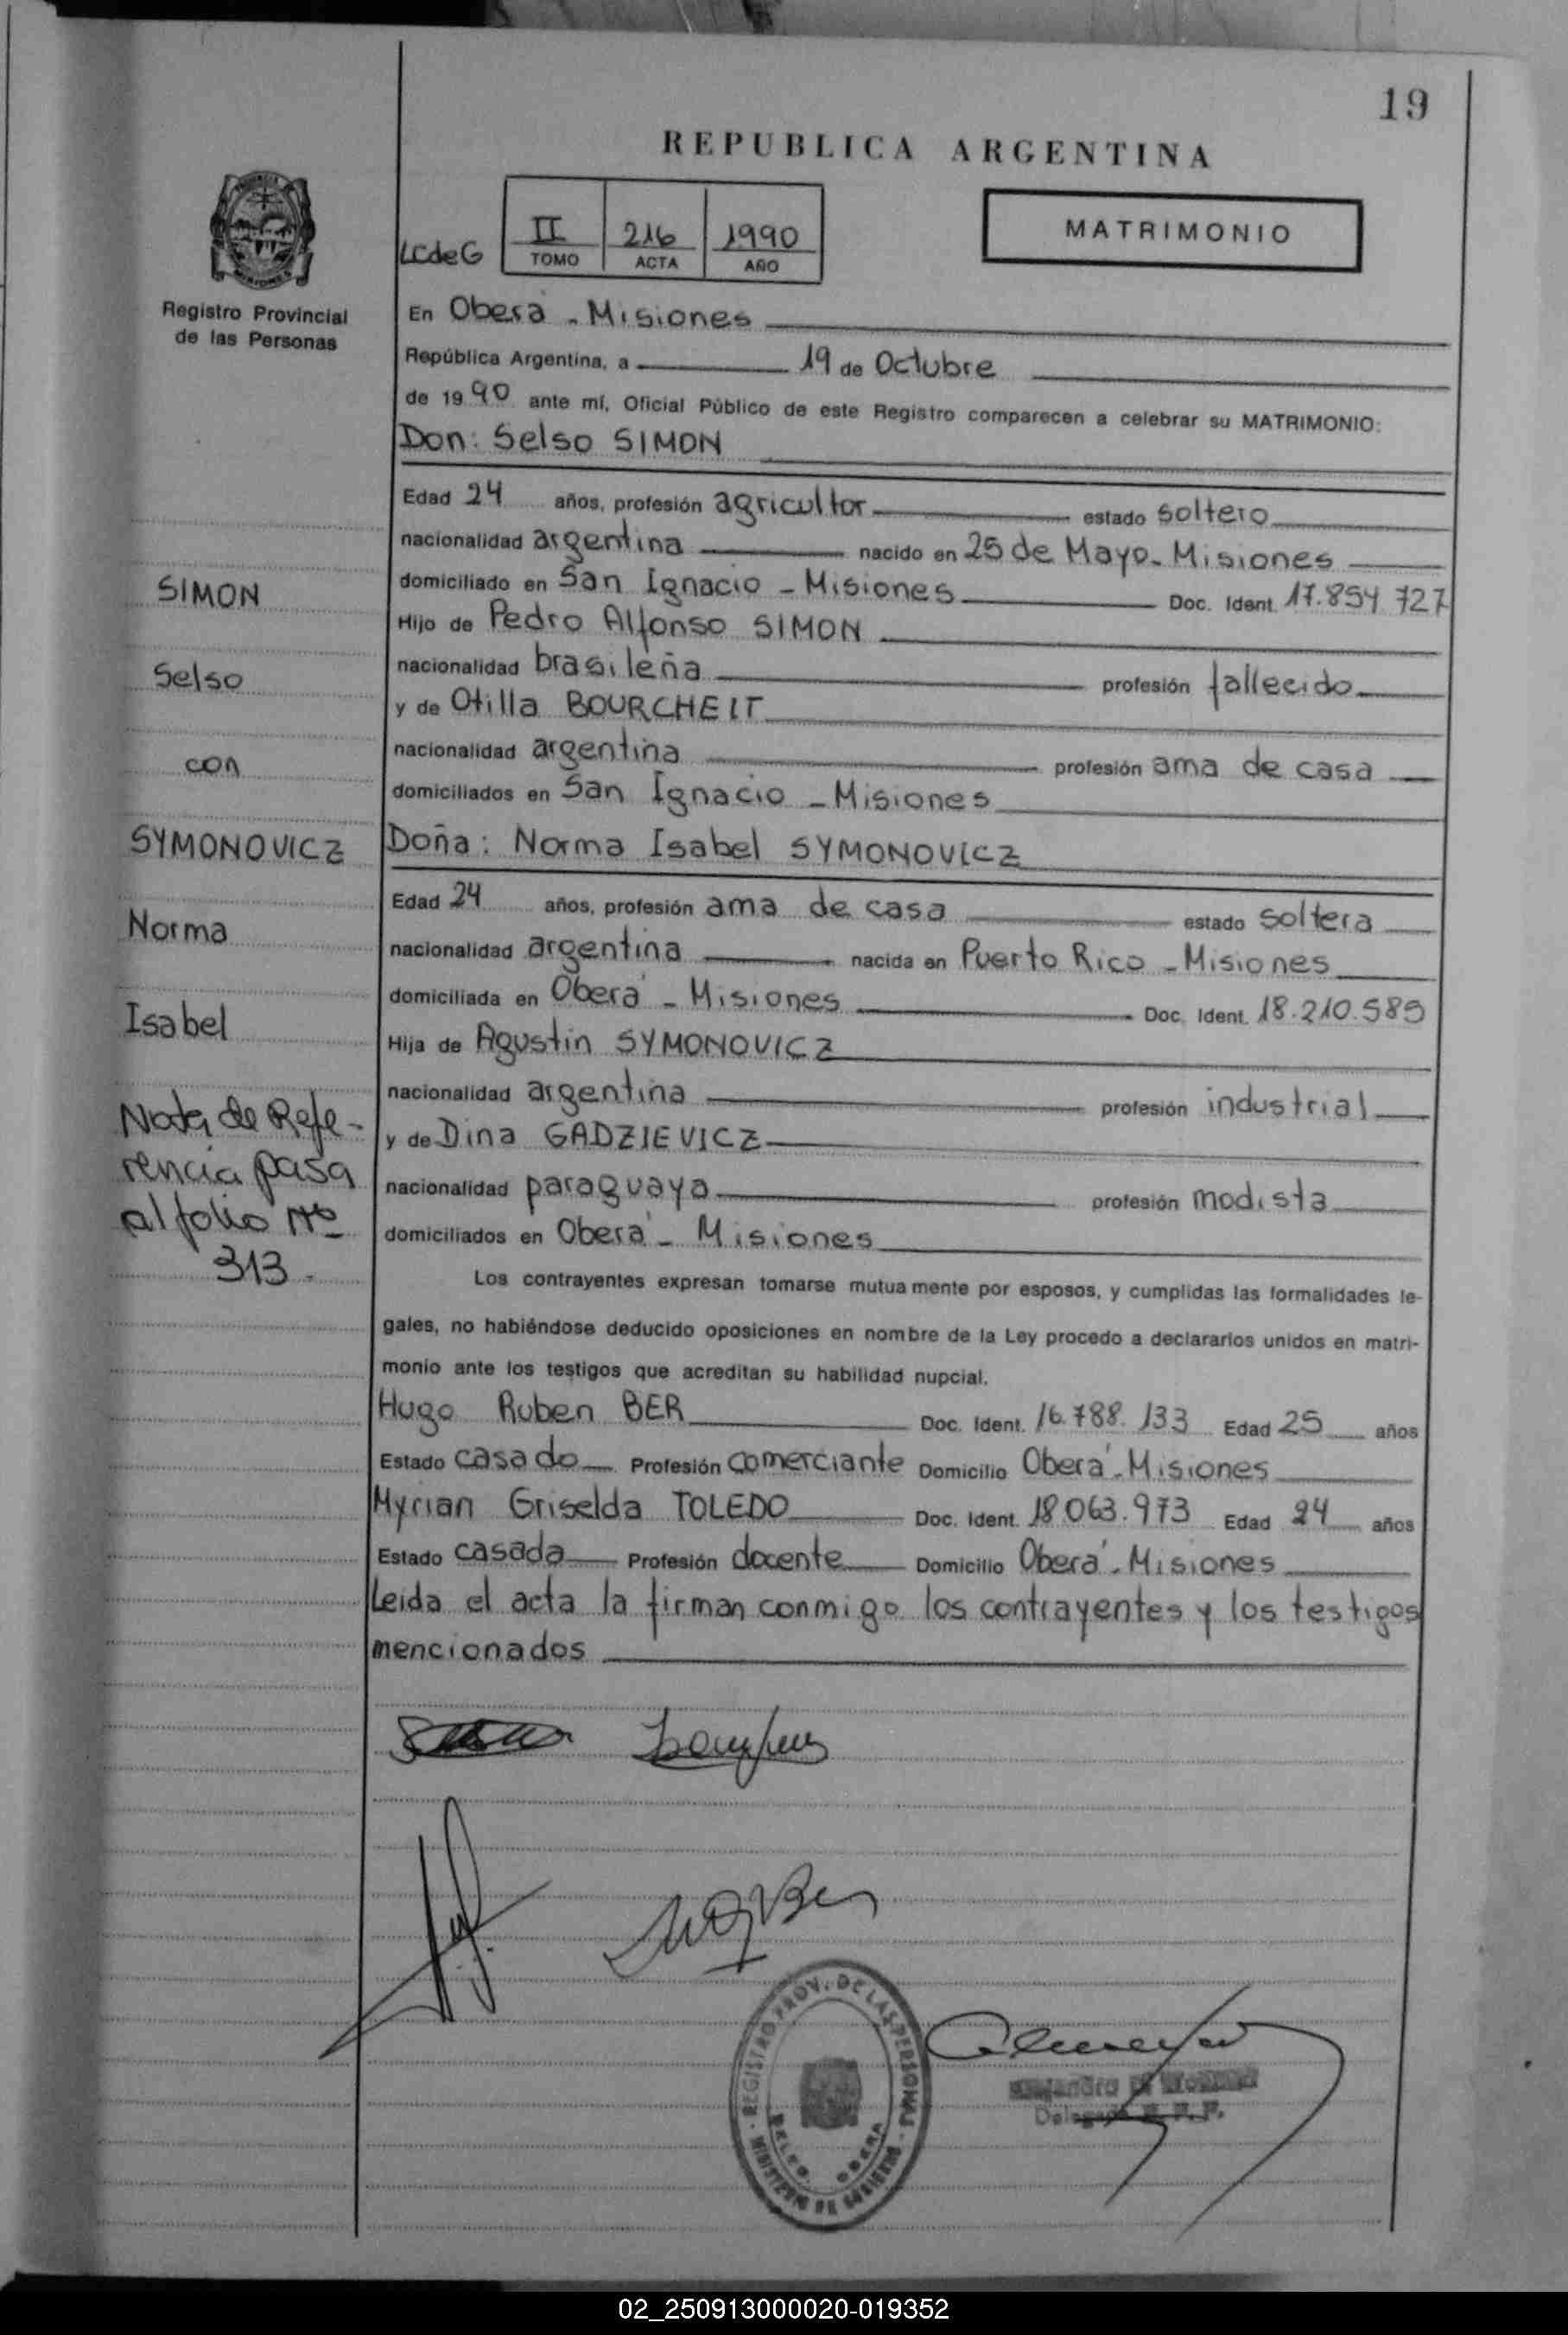 19
REPUBLICA ARGENTINA
LCdeG
II 216 1990
TOMO ACTA AÑO
MATRIMONIO
Registro Provincial
de las Personas
En Oberá - Misiones
República Argentina, a 19 de Octubre
de 1990 ante mí, Oficial Público de este Registro comparecen a celebrar su MATRIMONIO:
Don: Selso SIMON
Edad 24 años, profesión agricultor estado soltero
nacionalidad argentina nacido en 25 de Mayo - Misiones
domiciliado en San Ignacio - Misiones Doc. Ident. 17.854 727
Hijo de Pedro Alfonso SIMON
nacionalidad brasileña profesión fallecido
y de Otilla BOURCHEIT
nacionalidad argentina profesión ama de casa
domiciliados en San Ignacio - Misiones
Doña: Norma Isabel SYMONOVICZ
Edad 24 años, profesión ama de casa estado soltera
nacionalidad argentina nacida en Puerto Rico - Misiones
domiciliada en Oberá - Misiones Doc. Ident. 18.210.589
Hija de Agustin SYMONOVICZ
nacionalidad argentina profesión industrial
y de Dina GADZIEVICZ
nacionalidad paraguaya profesión modista
domiciliados en Oberá - Misiones
SIMON
Selso
con
SYMONOVICZ
Norma
Isabel
Nota de Refe-
rencia pasa
al folio Nº
313.
Los contrayentes expresan tomarse mutuamente por esposos, y cumplidas las formalidades le-
gales, no habiéndose deducido oposiciones en nombre de la Ley procedo a declararlos unidos en matri-
monio ante los testigos que acreditan su habilidad nupcial.
Hugo Ruben BER Doc. Ident. 16.788.133 Edad 25 años
Estado casado Profesión comerciante Domicilio Oberá - Misiones
Myrian Griselda TOLEDO Doc. Ident. 18.063.973 Edad 24 años
Estado casada Profesión docente Domicilio Oberá - Misiones
Leida el acta la firman conmigo los contrayentes y los testigos
mencionados
REGISTRO PROV. DE LAS PERSONAS
MINISTERIO DE GOBIERNO
DELEG. OBERA
02_250913000020-019352